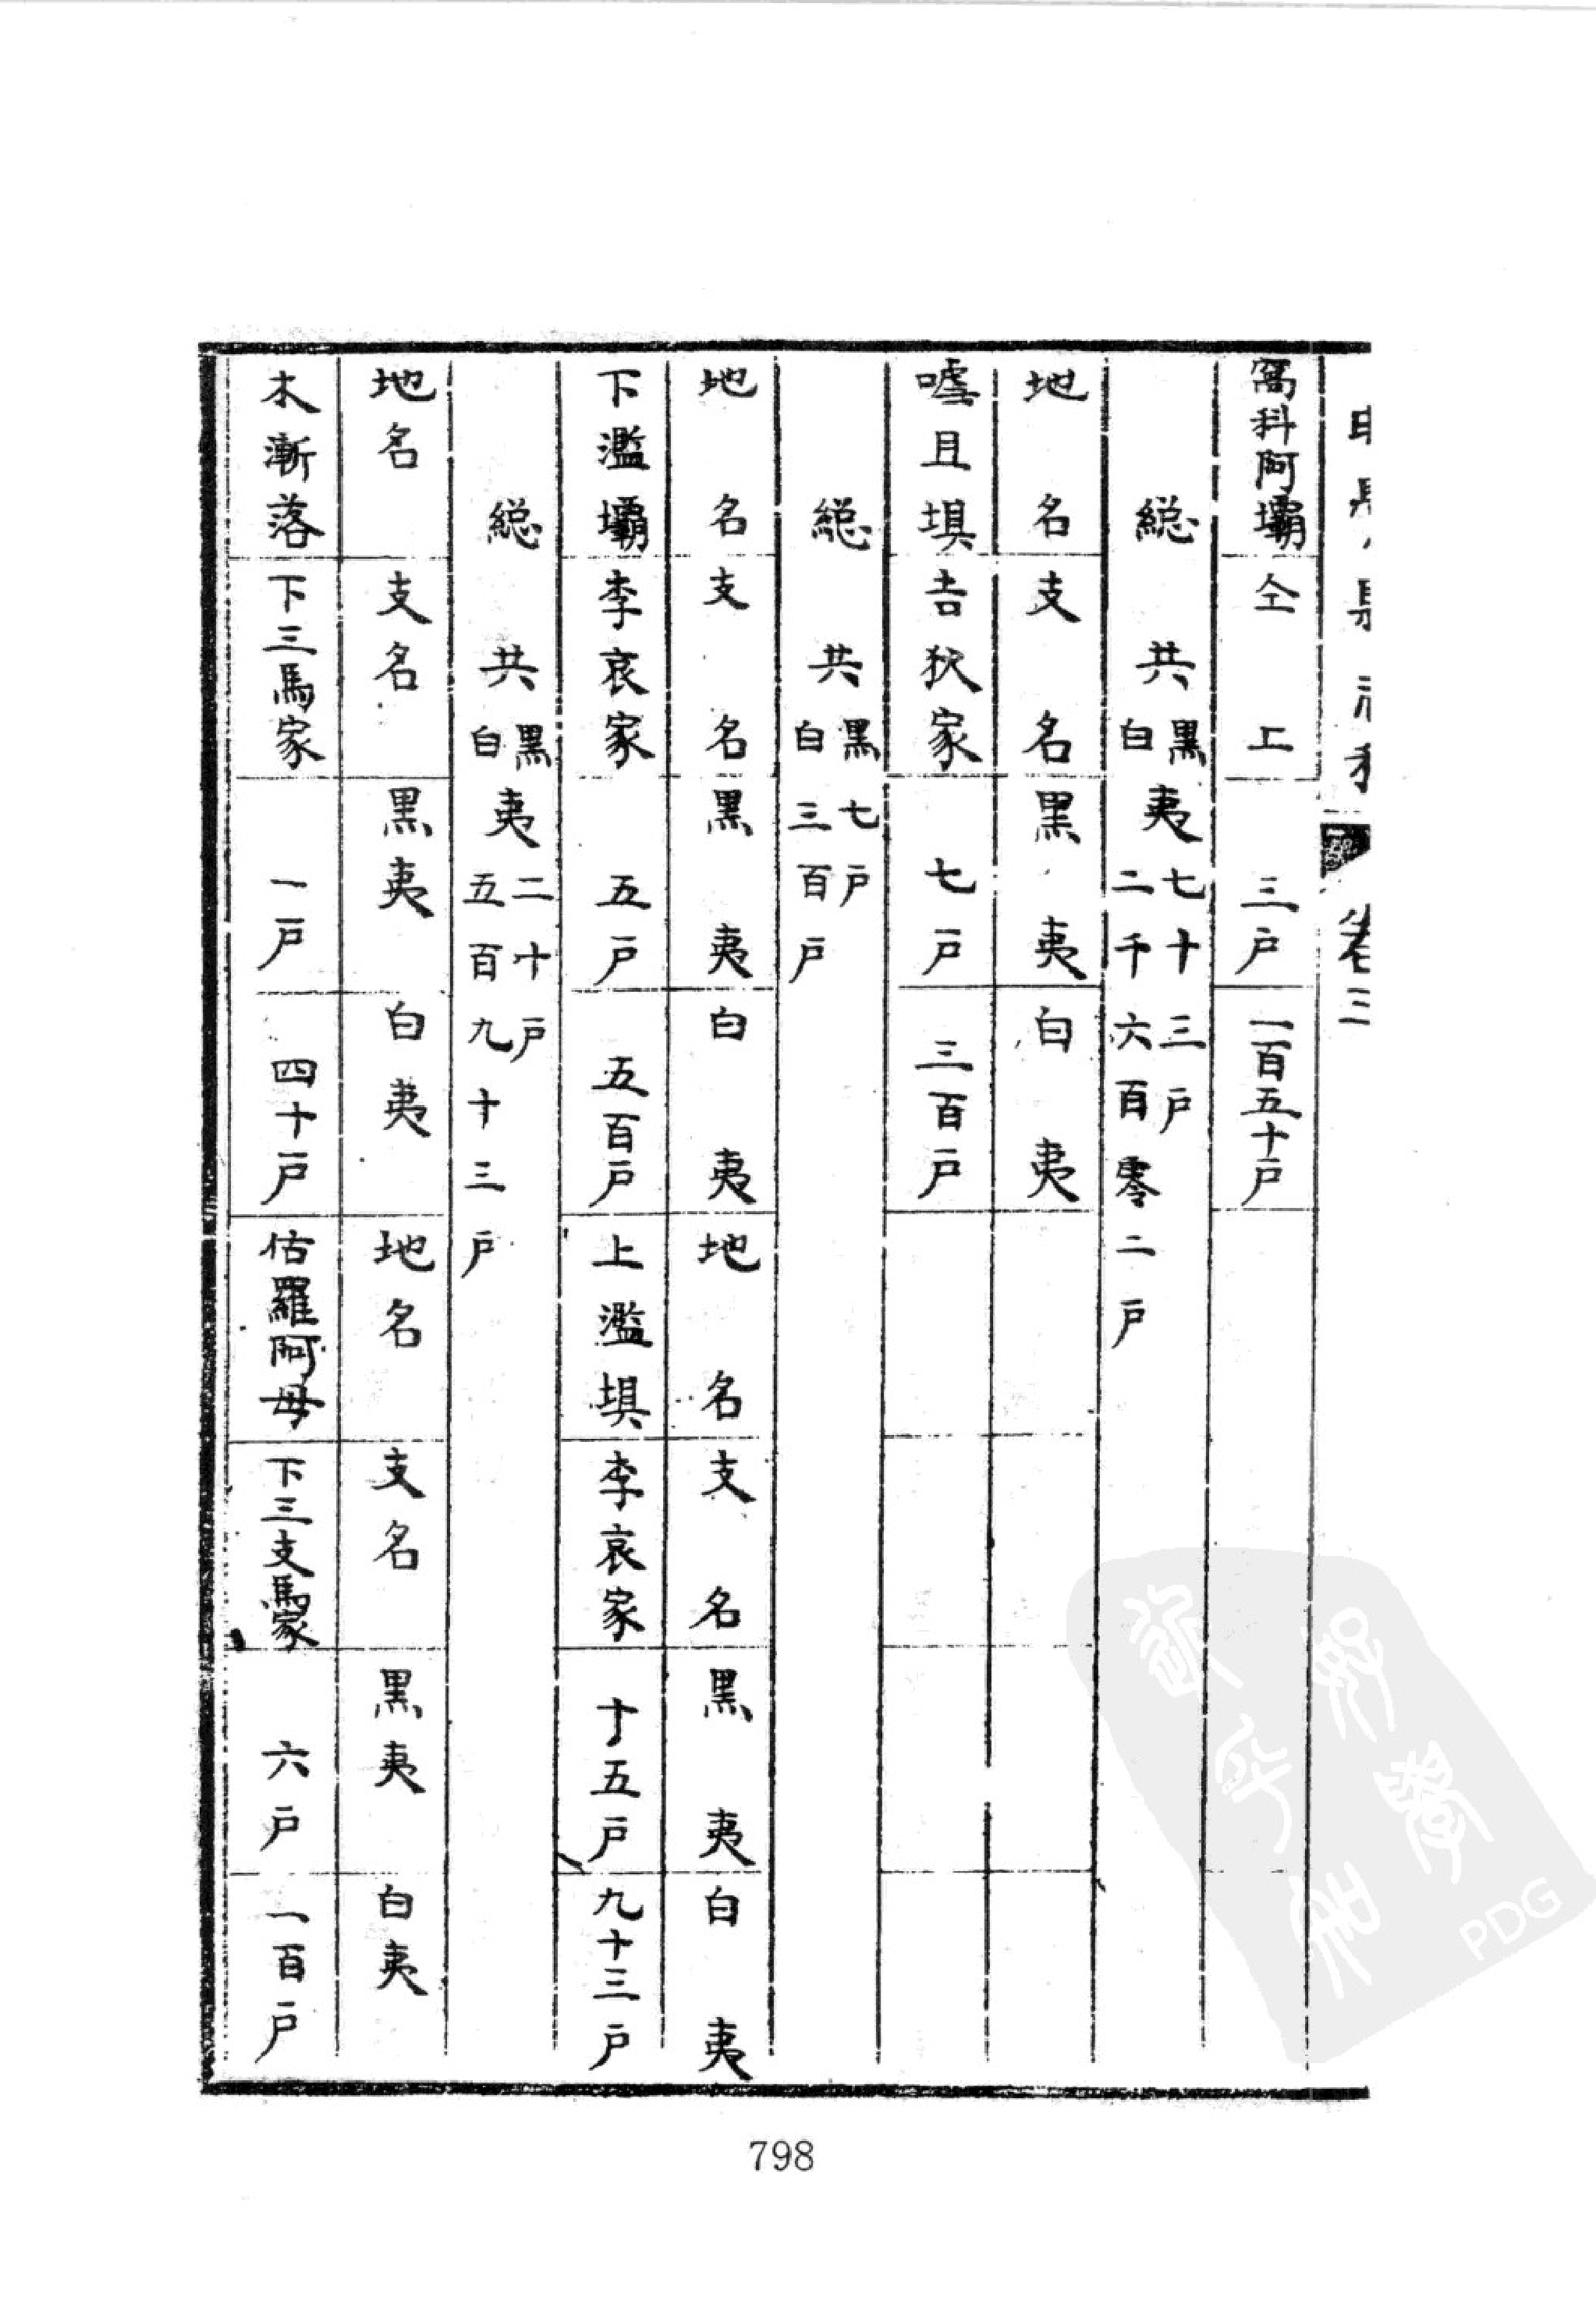 卷三
窩科阿壩 仝上 三戶 一百五十戶
總共黑白夷七十三戶二千六百零二戶
地名 支名 黑夷 白夷
嘑且埧 吉狄家 七戶 三百戶
總共黑白七戶三百戶
地名 支名 黑夷 白夷 地名 支名 黑夷 白夷
下濫壩 李哀家 五戶 五百戶 上濫埧 李哀家 十五戶 九十三戶
總共黑白夷二十戶五百九十三戶
地名 支名 黑夷 白夷 地名 支名 黑夷 白夷
木漸落 下三馬家 一戶 四十戶 估羅阿母 下三支馬家 六戶 一百戶
798
PDG